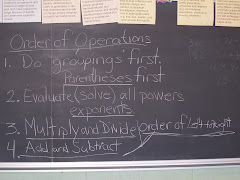 Order of Operations
1. Do "groupings" first.
Parentheses first
2. Evaluate (solve) all powers
exponents.
3. Multiply and Divide order of left to right
4. Add and Subtract